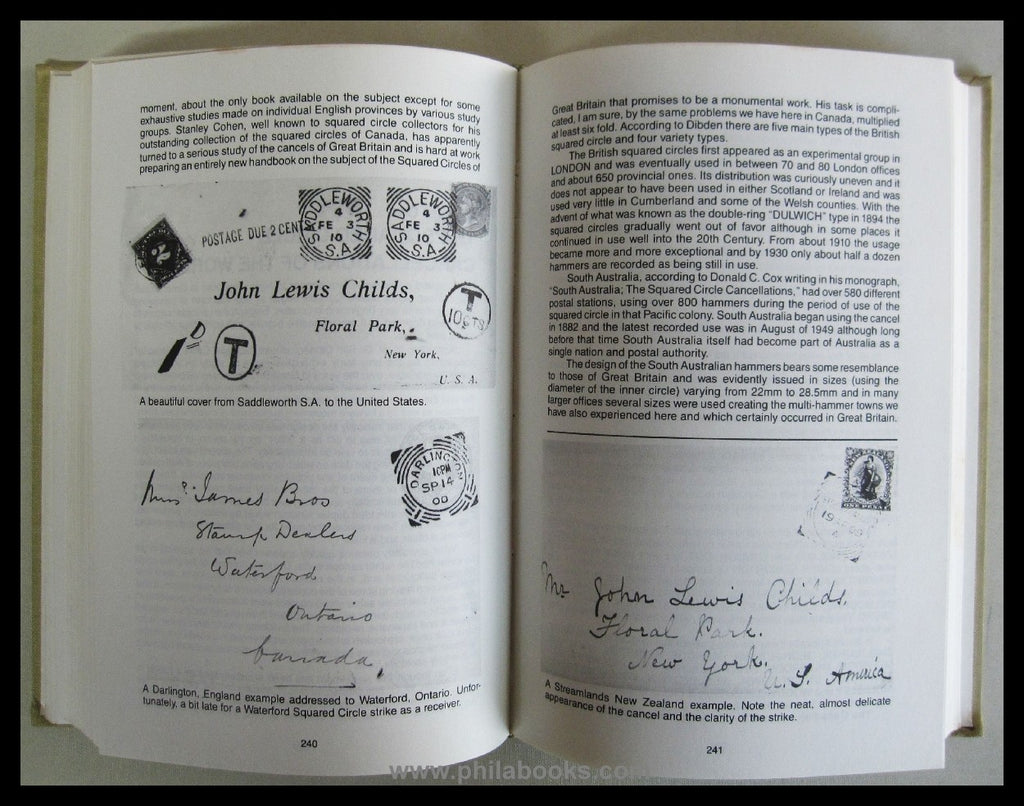 moment, about the only book available on the subject except for some
exhaustive studies made on individual English provinces by various study
groups. Stanley Cohen, well known to squared circle collectors for his
outstanding collection of the squared circles of Canada, has apparently
turned to a serious study of the cancels of Great Britain and is hard at work
preparing an entirely new handbook on the subject of the Squared Circles of
SADDLEWORTH
4
FE 3
10
S.A.
SADDLEWORTH
4
FE 3
10
S.A.
2
POSTAGE DUE 2 CENTS
John Lewis Childs,
T
10 CTS
Floral Park,
T
New York,
U. S. A.
A beautiful cover from Saddleworth S.A. to the United States.
DARLINGTON
10PM
SP 14
00
1
James Bros
Stamp Dealers
Waterford
Ontario
Canada,
A Darlington, England example addressed to Waterford, Ontario. Unfor-
tunately, a bit late for a Waterford Squared Circle strike as a receiver.
240
Great Britain that promises to be a monumental work. His task is compli-
cated, I am sure, by the same problems we have here in Canada, multiplied
at least six fold. According to Dibden there are five main types of the British
squared circle and four variety types.
The British squared circles first appeared as an experimental group in
LONDON and was eventually used in between 70 and 80 London offices
and about 650 provincial ones. Its distribution was curiously uneven and it
does not appear to have been used in either Scotland or Ireland and was
used very little in Cumberland and some of the Welsh counties. With the
advent of what was known as the double-ring "DULWICH" type in 1894 the
squared circles gradually went out of favor although in some places it
continued in use well into the 20th Century. From about 1910 the usage
became more and more exceptional and by 1930 only about half a dozen
hammers are recorded as being still in use.
South Australia, according to Donald C. Cox writing in his monograph,
"South Australia; The Squared Circle Cancellations," had over 580 different
postal stations, using over 800 hammers during the period of use of the
squared circle in that Pacific colony. South Australia began using the cancel
in 1882 and the latest recorded use was in August of 1949 although long
before that time South Australia itself had become part of Australia as a
single nation and postal authority.
The design of the South Australian hammers bears some resemblance
to those of Great Britain and was evidently issued in sizes (using the
diameter of the inner circle) varying from 22mm to 28.5mm and in many
larger offices several sizes were used creating the multi-hammer towns we
have also experienced here and which certainly occurred in Great Britain.
ONE PENNY
Mr John Lewis Childs.
Floral Park.
New York.
U. S. America
A Streamlands New Zealand example. Note the neat, almost delicate
appearance of the cancel and the clarity of the strike.
241
www.philabooks.com